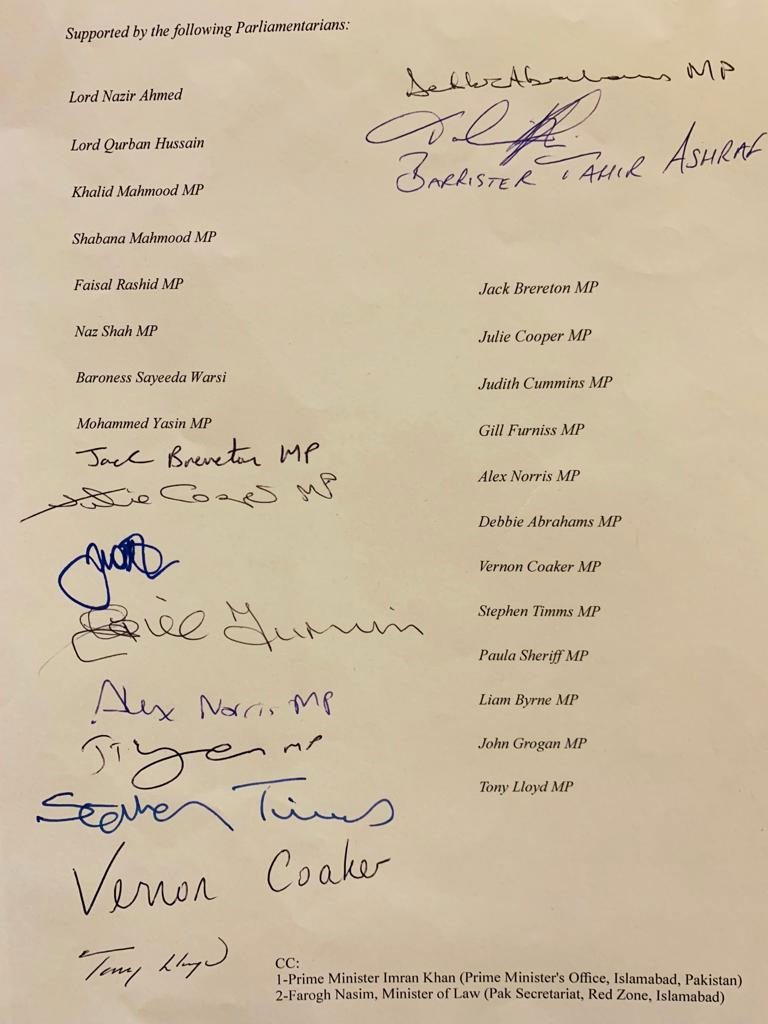 Supported by the following Parliamentarians:
Debbie Abrahams MP
Lord Nazir Ahmed
Lord Qurban Hussain
BARRISTER TAHIR ASHRAF
Khalid Mahmood MP
Shabana Mahmood MP
Faisal Rashid MP
Naz Shah MP
Baroness Sayeeda Warsi
Mohammed Yasin MP
Jack Brereton MP
Julie Cooper MP
Gill Furniss
Alex Norris MP
MP
Stephen Timms
Vernon Coaker
Tony Lloyd
Jack Brereton MP
Julie Cooper MP
Judith Cummins MP
Gill Furniss MP
Alex Norris MP
Debbie Abrahams MP
Vernon Coaker MP
Stephen Timms MP
Paula Sheriff MP
Liam Byrne MP
John Grogan MP
Tony Lloyd MP
CC:
1-Prime Minister Imran Khan (Prime Minister's Office, Islamabad, Pakistan)
2-Farogh Nasim, Minister of Law (Pak Secretariat, Red Zone, Islamabad)